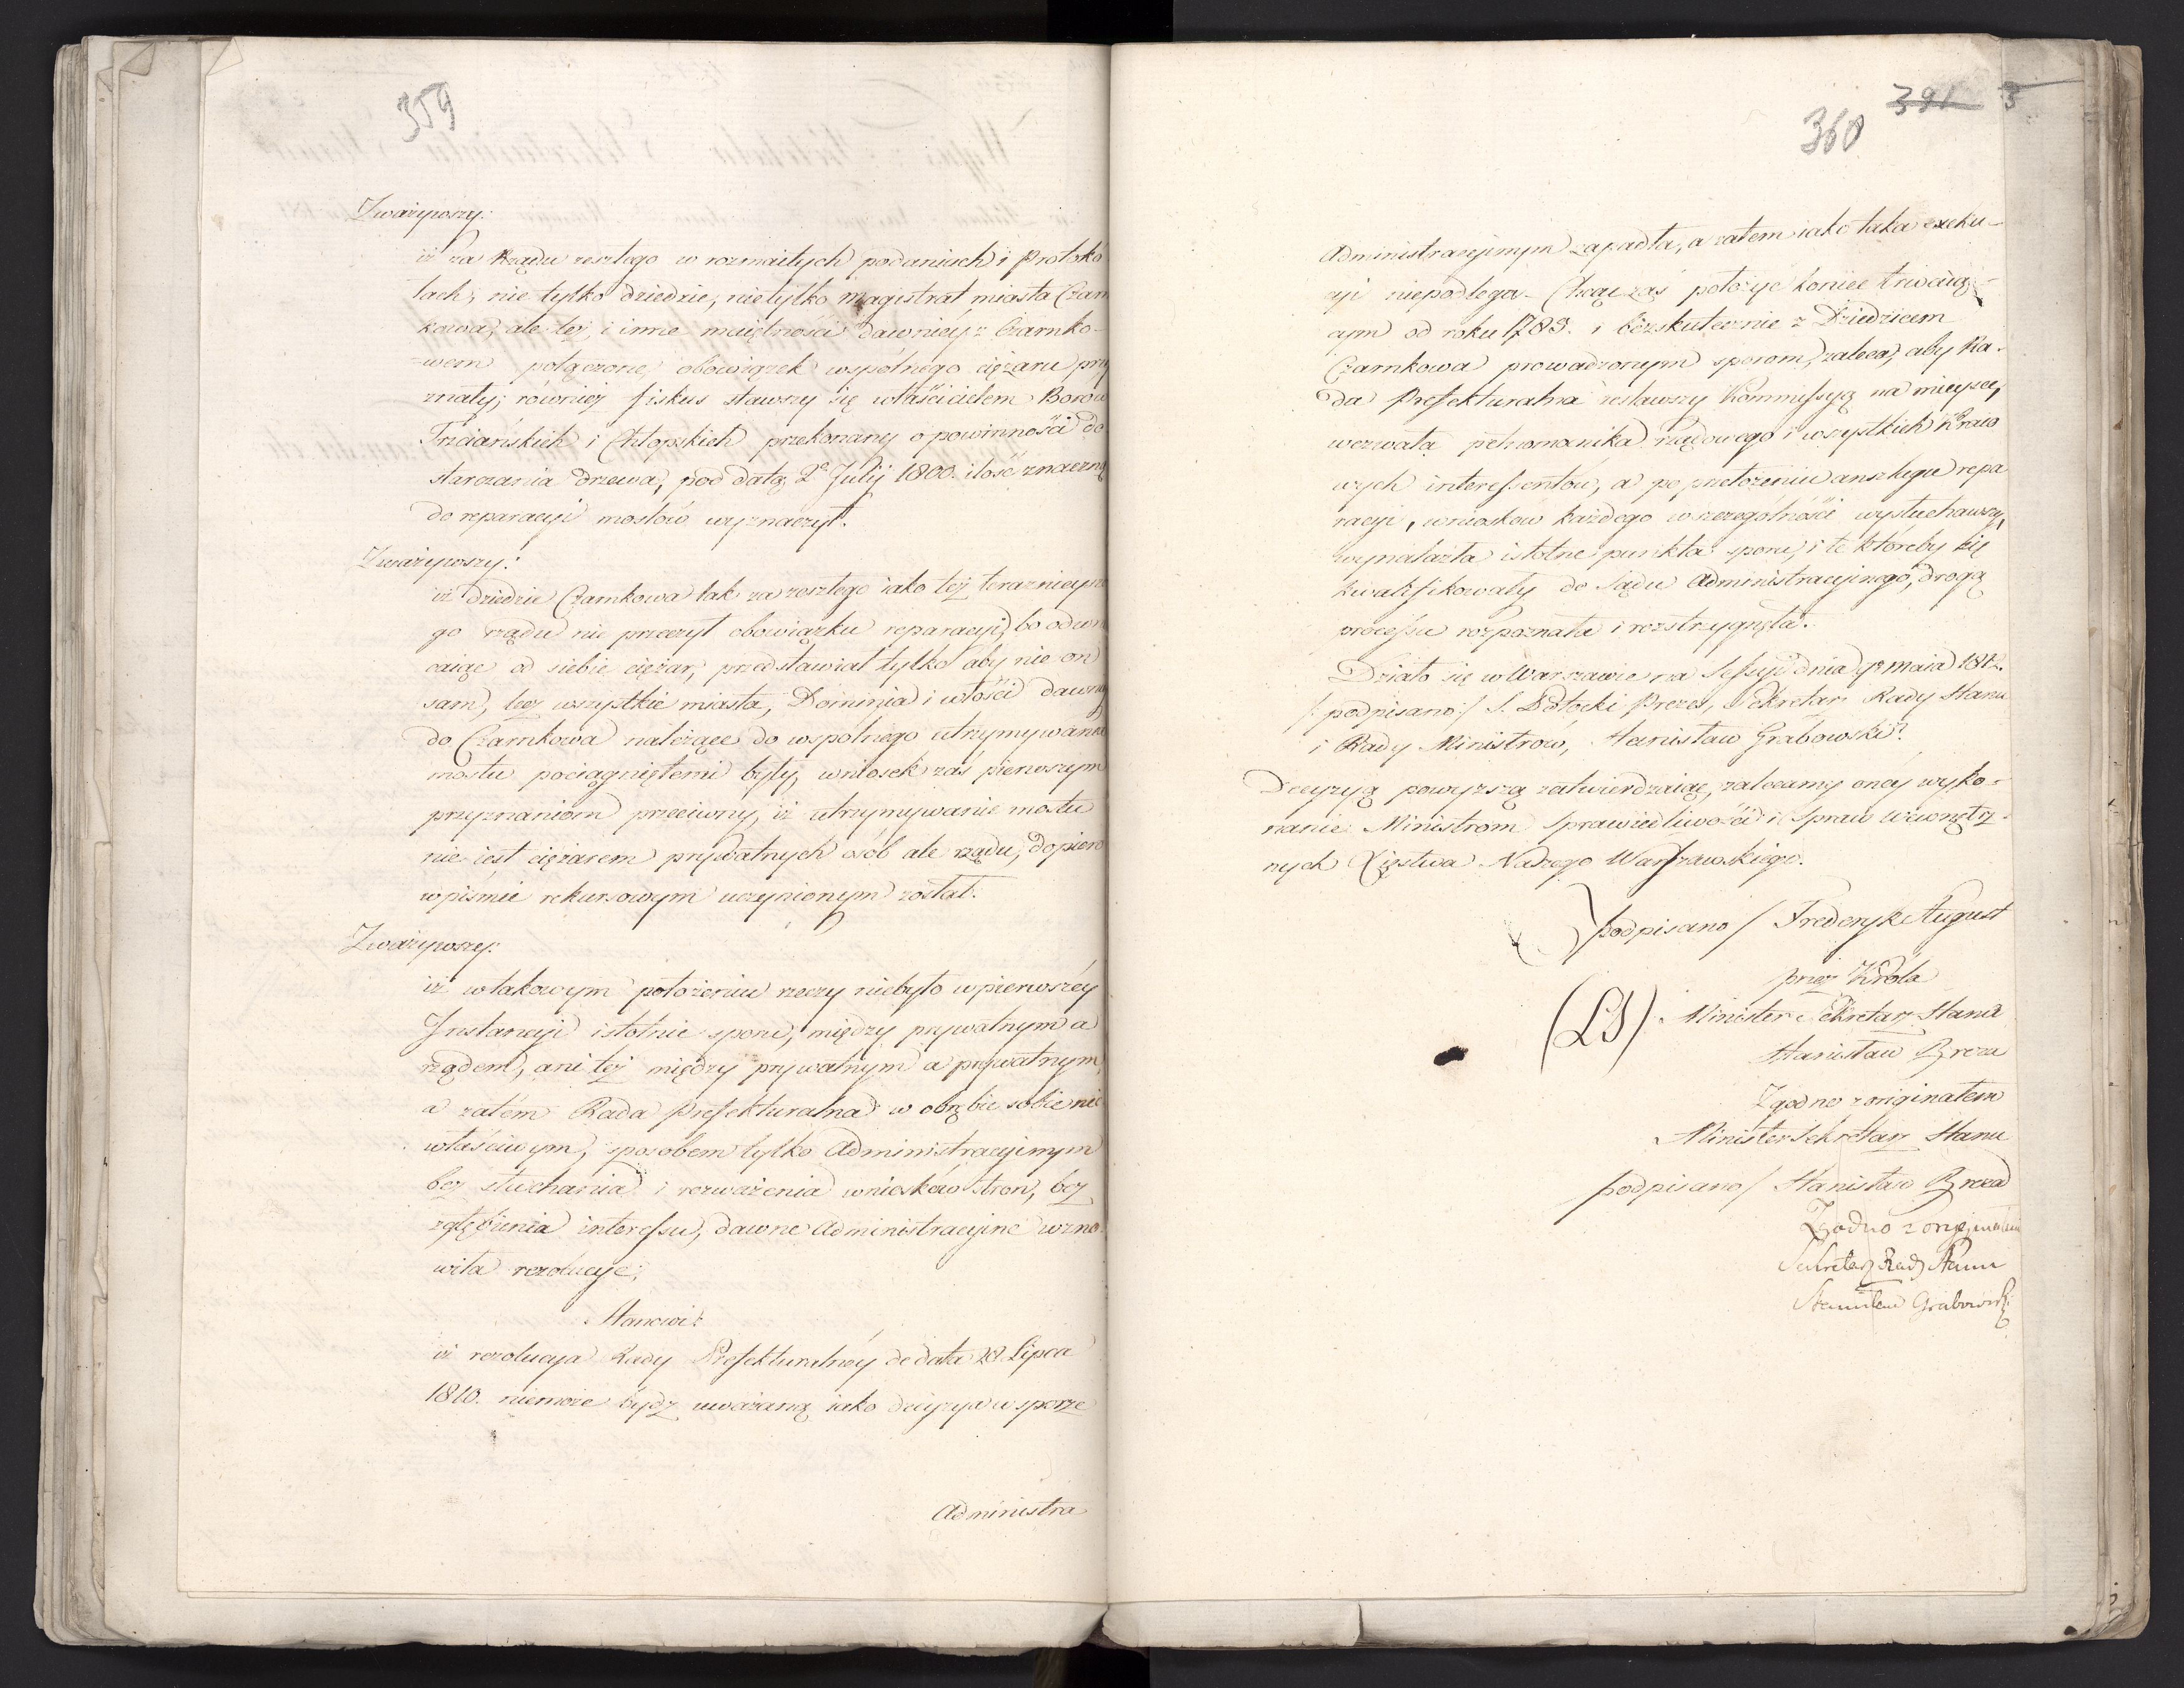 359
Zważywszy:
iż za Rządu zeszłego w rozmaitych podaniach i Protokó
łach, nie tylko dziedzic, nietylko Magistrat miasta Czarn
kowa, ale też i inne maiętności dawniéy z Czarnko-
=wem połączone, obowiązek wspólnego ciężaru przy
znały; równiéż fiskus stawszy się właścicielem Borów
Trzciańskich i Chłopskich przekonany o powinności do
starczania drzewa, pod datą 2a July 1800. ilość znaczną
do reparacyi mostów wyznaczył.
Zważywszy:
iż dziedzic Czarnkowa tak za zeszłego iako też teraznieysze
go rządu nie przeczył obowiązku reparacyi, bo odwra
caiąc od siebie ciężar, przedstawiał tylko aby nie on
sam, lecz wszystkie miasta, Dominia i włości dawniéy
do Czarnkowa należące do wspólnego utrzymywania
mostu pociągniętemi były, wniosek zaś pierwszym
przyznaniom przeciwny, iż utrzymywanie mostu
nie iest ciężarem prywatnych osób ale rządu, dopiero
w piśmie rekursowym uczynionym został.
Zważywszy:
iż w takowym położeniu rzeczy niebyło w pierwszéy
Instancyi istotnie sporu, między prywatnym a
rządem, ani też między prywatnym a prywatnym,
a zatém Rada Prefekturalna w obrębie sobie nie
właściwym, sposobem tylko Administracyinym
bez słuchania i rozważenia wniosków stron, bez
zgłębienia interessu, dawne Administracyine wzno-
wiła rezolucye;
Stanowi:
iż rezolucya Rady Prefekturalnéy de data 28 Lipca
1810. niemoże bydź uważaną iako decyzya w sporze
Administra
391 3
360
Administracyinym zapadła, a zatem iako taka exeku-
cyi niepodlega. Chcąc zaś położyć koniec trwaiąc-
cym od roku 1783. i bezskutecznie z Dziedzicem
Czarnkowa prowadzonym sporom, zaleca, aby Ra-
da Prefekturalna zesławszy Kommissyą na mieysce,
wezwała pełnomocnika rządowego i wszystkich Kraio
wych interessentów, a po przełożeniu anszlagu repa
racyi, wniosków każdego w szczególności wysłuchawszy,
wynalazła istotne punkta sporu, i te któreby się
kwalifikowały do Sądu Administracyinego, drogą
processu rozpoznała i rozstrzygnęła.
Działo się w Warszawie na Sessyi dnia maia 1812.
/:podpisano:/ S. Potocki Prezes, Sekretarz Rady Stanu
i Rady Ministrów, Stanisław Grabowski.
Decyzyą powyższą zatwierdzaiąc, zalecamy onéy wyko-
nanie Ministrom Sprawiedliwości i Spraw Wewnętrz-
nych Xięstwa Naszego Warszawskiego.
podpisano/ Fryderyk August
przez Króla
(LS) Minister Sekretarz Stanu
Stanisław Breza
Zgodno z originałem
Minister Sekretarz Stanu
podpisano/ Stanisław Breza
Zgodno z oryginałem
Sekretarz Rady Stanu
Stanisław Grabowski